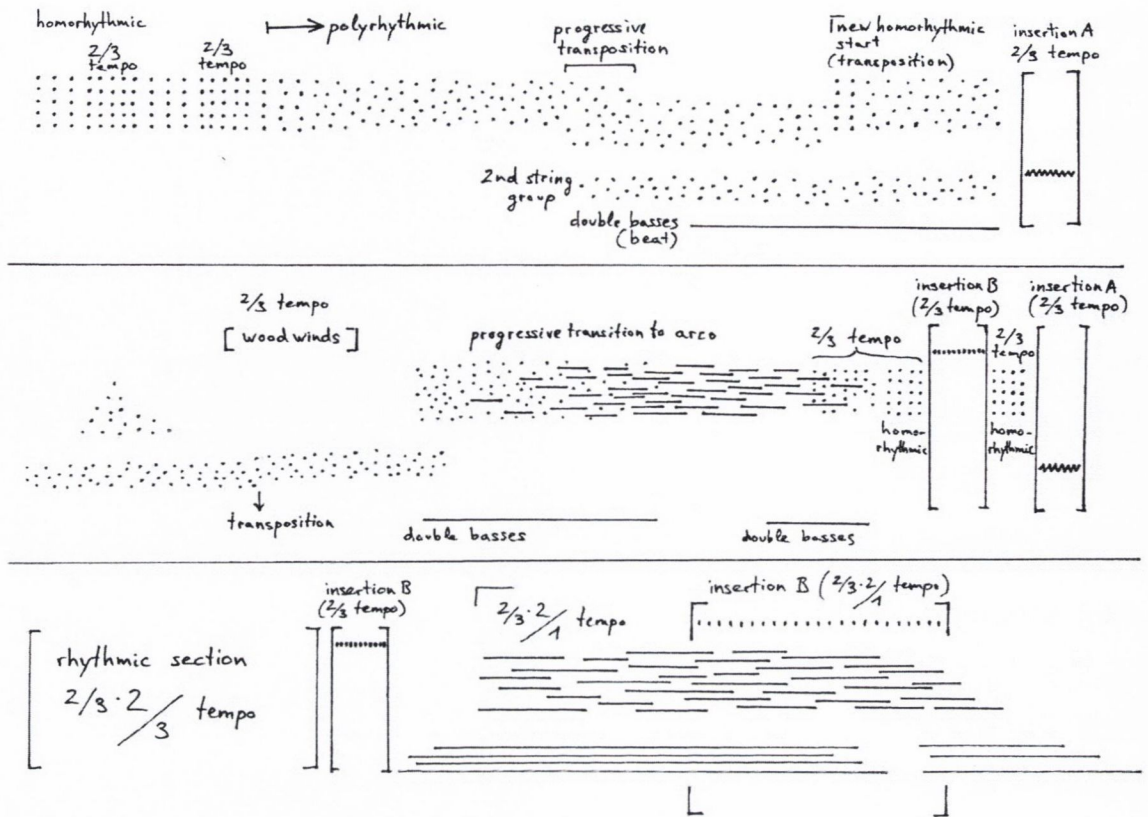 homorhythmic
polyrhythmic
2/3
tempo
2/3
tempo
progressive
transposition
new homorhythmic
start
(transposition)
insertion A
2/3 tempo
2nd string
group
double basses
(beat)
2/3 tempo
[woodwinds]
progressive transition to arco
2/3 tempo
insertion B
(2/3 tempo)
2/3
tempo
insertion A
(2/3 tempo)
homo-
rhythmic
homo-
rhythmic
transposition
double basses
double basses
rhythmic section
2/3·2/3 tempo
insertion B
(2/3 tempo)
2/3·2/1 tempo
insertion B (2/3·2/1 tempo)